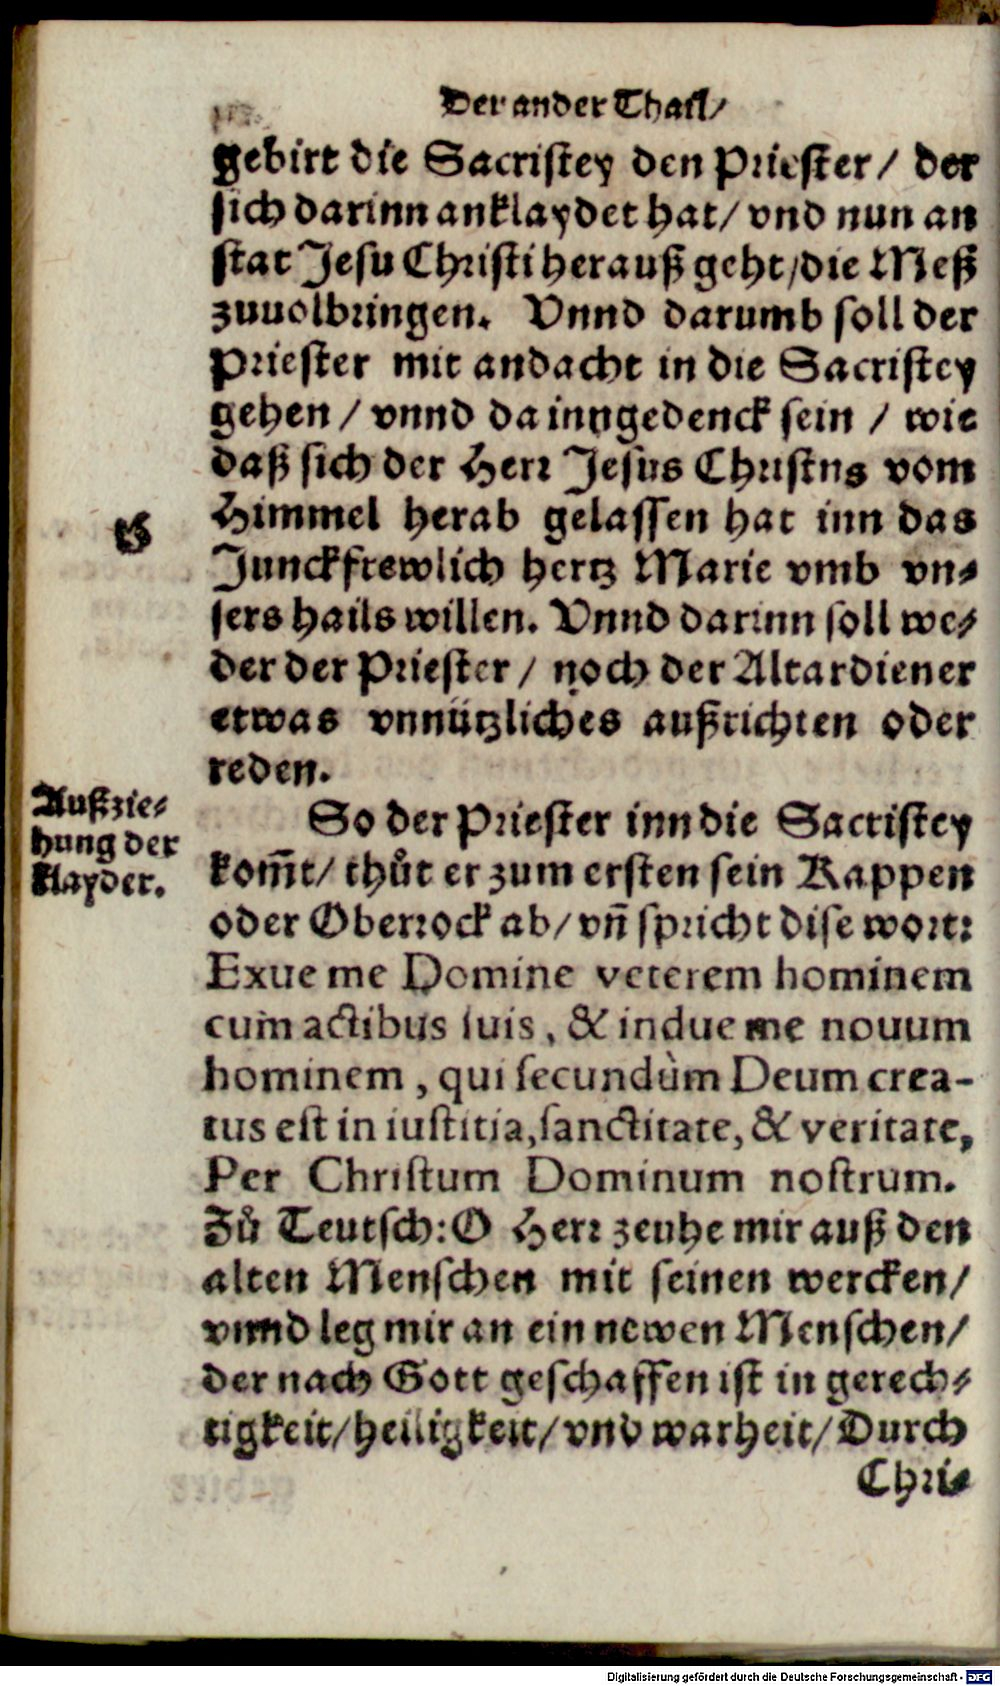 Der ander Thail/
gebirt die Sacristey den Priester/ der
sich darinn anklaydet hat/ vnd nun an
stat Jesu Christi herauß geht/die Meß
zuuolbringen. Vnnd darumb soll der
Priester mit andacht in die Sacristey
gehen / vnnd da inngedenck sein / wie
daß sich der Herr Jesus Christus vom
Himmel herab gelassen hat inn das
Junckfrewlich hertz Marie vmb vn-
sers hails willen. Vnnd darinn soll we-
der der Priester / noch der Altardiener
etwas vnnützliches außrichten oder
reden.
Außzie-
hung der
klayder.
So der Priester inn die Sacristey
kom̃t/ thůt er zum ersten sein Kappen
oder Oberrock ab/ vñ spricht dise wort:
Exue me Domine veterem hominem
cum actibus suis, & indue me nouum
hominem, qui secundùm Deum crea-
tus est in iustitia, sanctitate, & veritate,
Per Christum Dominum nostrum.
Zů Teutsch: O Herr zeuhe mir auß den
alten Menschen mit seinen wercken/
vnnd leg mir an ein newen Menschen/
der nach Gott geschaffen ist in gerech-
tigkeit/heiligkeit/vnd warheit/Durch
Chri-
Digitalisierung gefördert durch die Deutsche Forschungsgemeinschaft - DFG